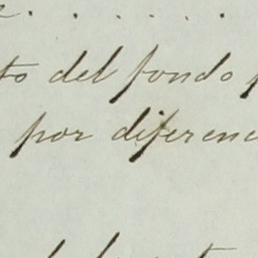 to del fondo
por diferenc